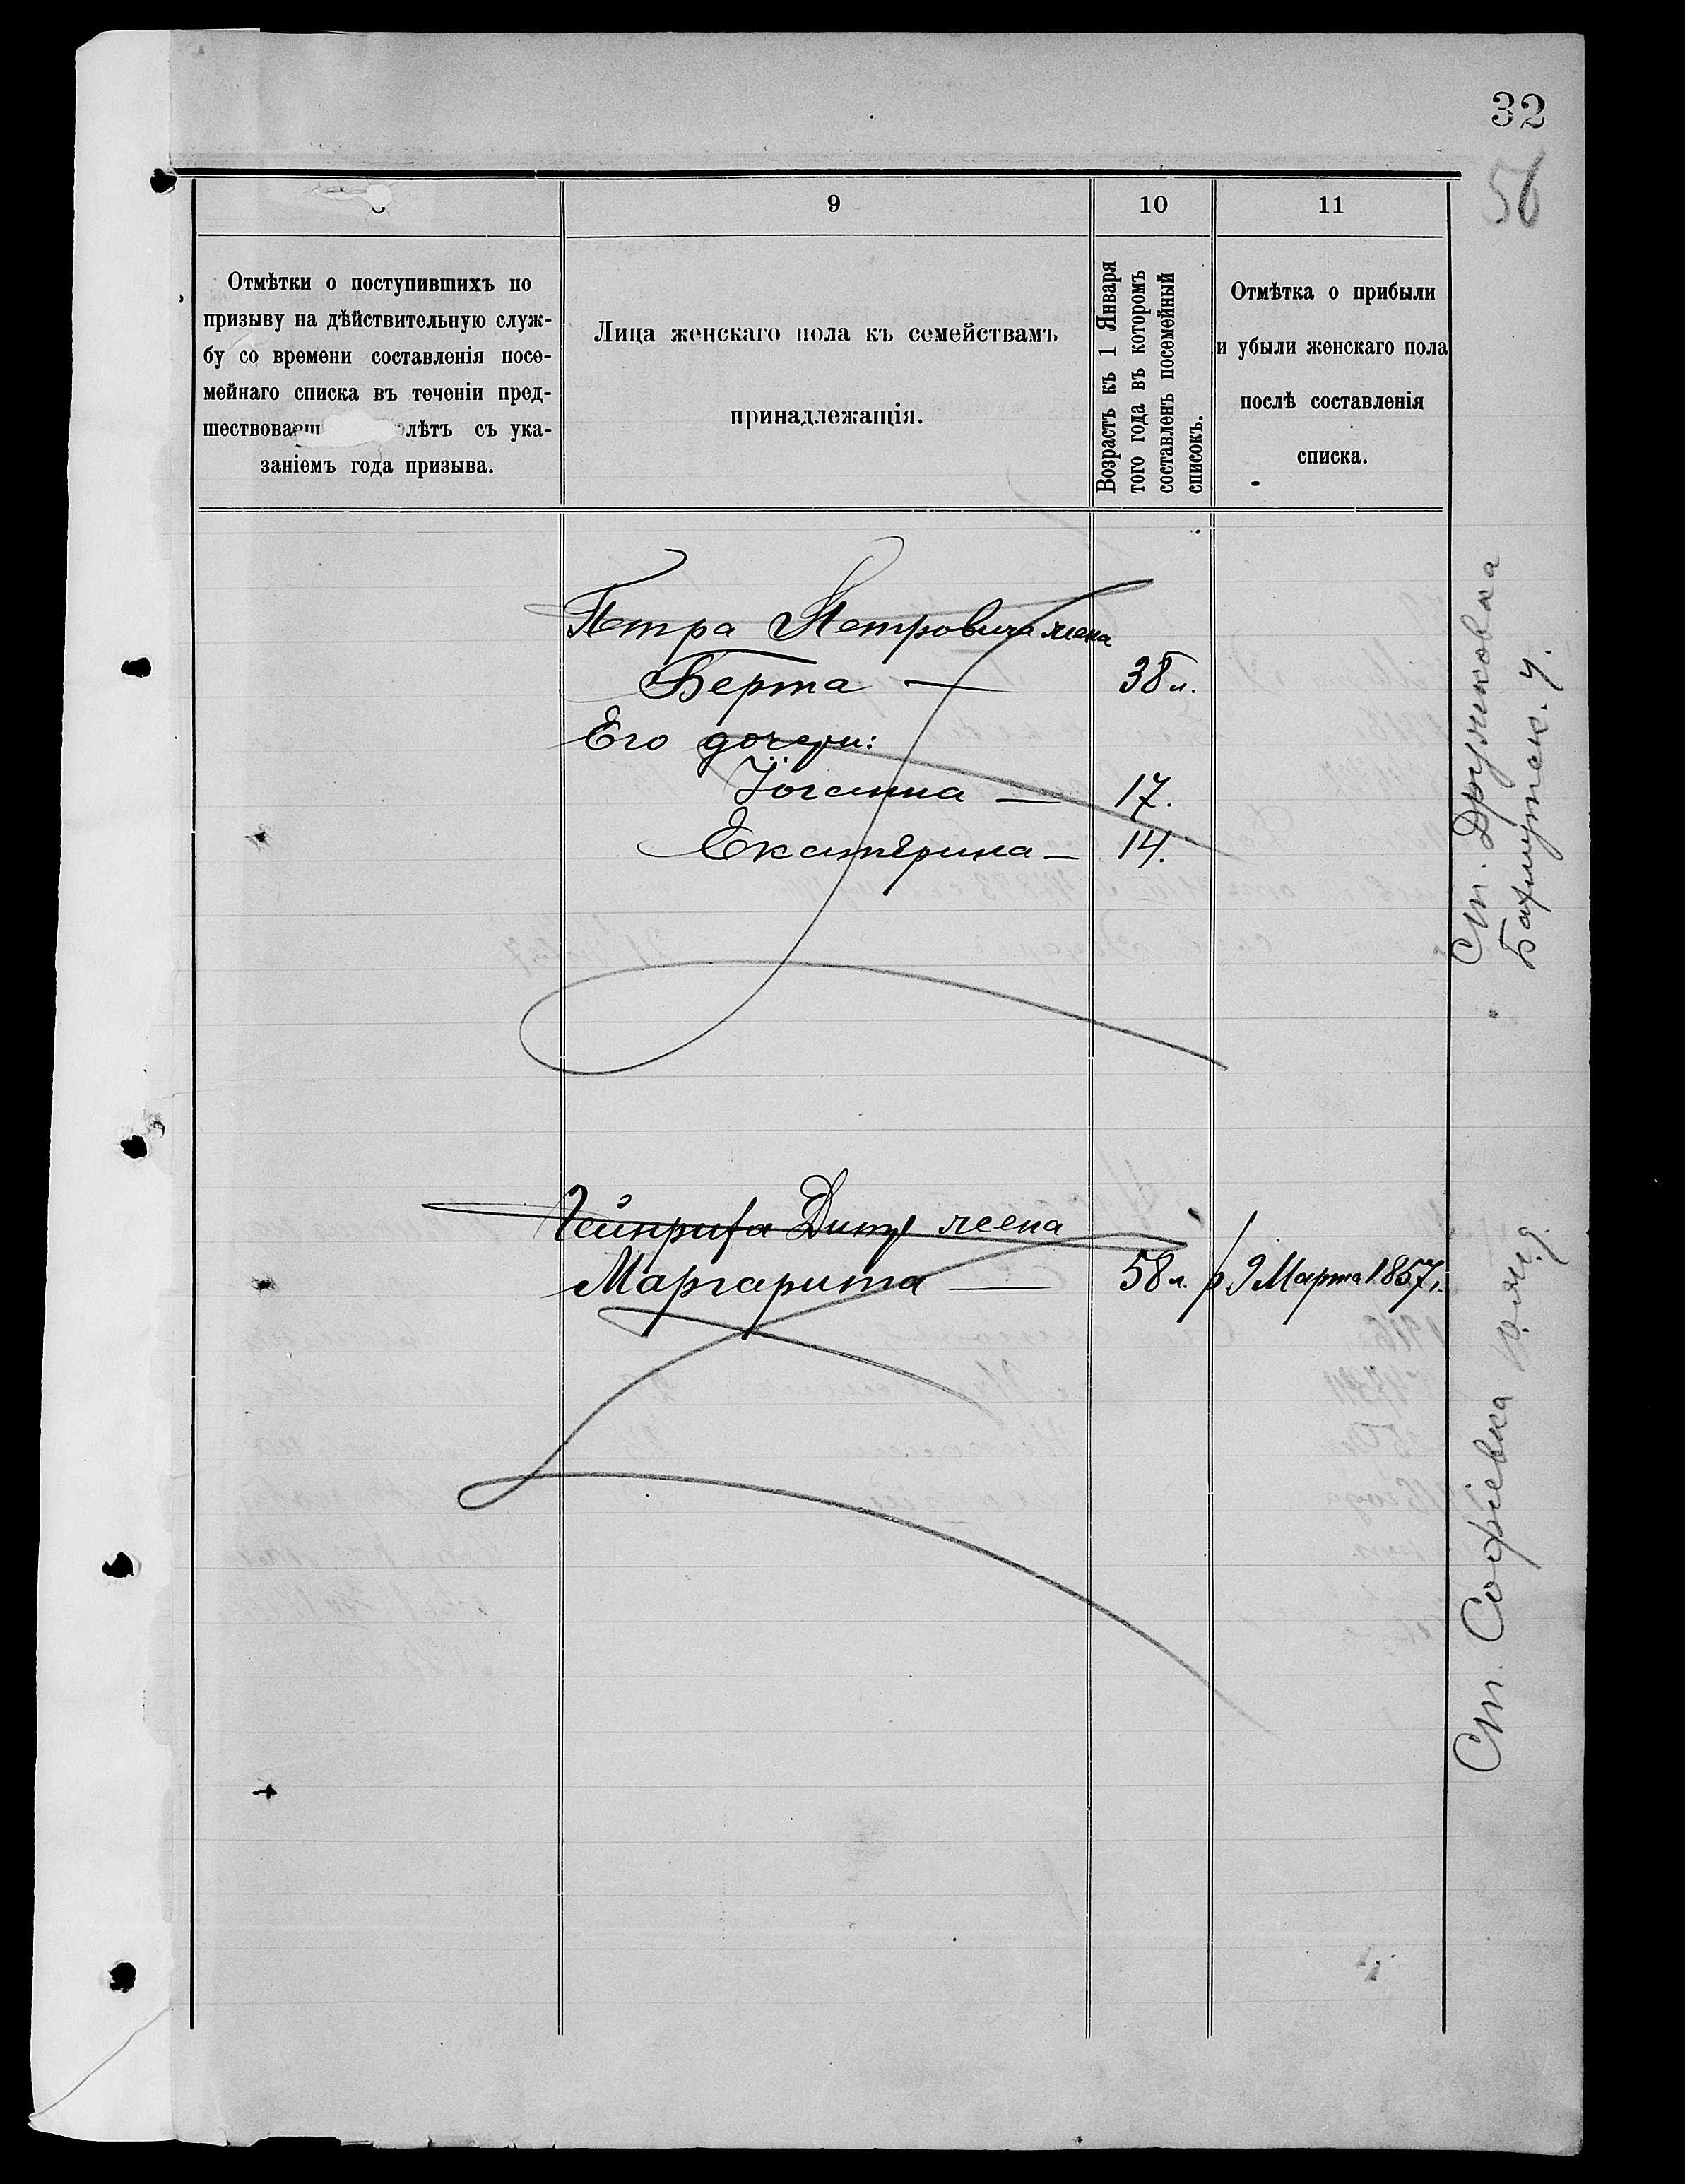 32
56
9
10
11
Отмѣтки о поступившихъ по
призыву на дѣйствительную служ-
бу со времени составленія посе-
мейнаго списка въ теченіи пред-
шествовавш лѣтъ съ ука-
заніемъ года призыва.
Лица женскаго пола къ семействамъ
принадлежащія.
Возрастъ къ 1 Января
того года въ которомъ
составленъ посемейный
списокъ.
Отмѣтка о прибыли
и убыли женскаго пола
послѣ составленія
списка.
Петра Петровича жена
Берта — 38 л.
Его дочери:
Іоганна — 17.
Екатерина — 14.
Гейнриха Дитр жена
Маргарита — 58 л. р 9 Марта 1857 г.
Ст. Дружковка
Бахмутск. у.
Ст. Софіевка